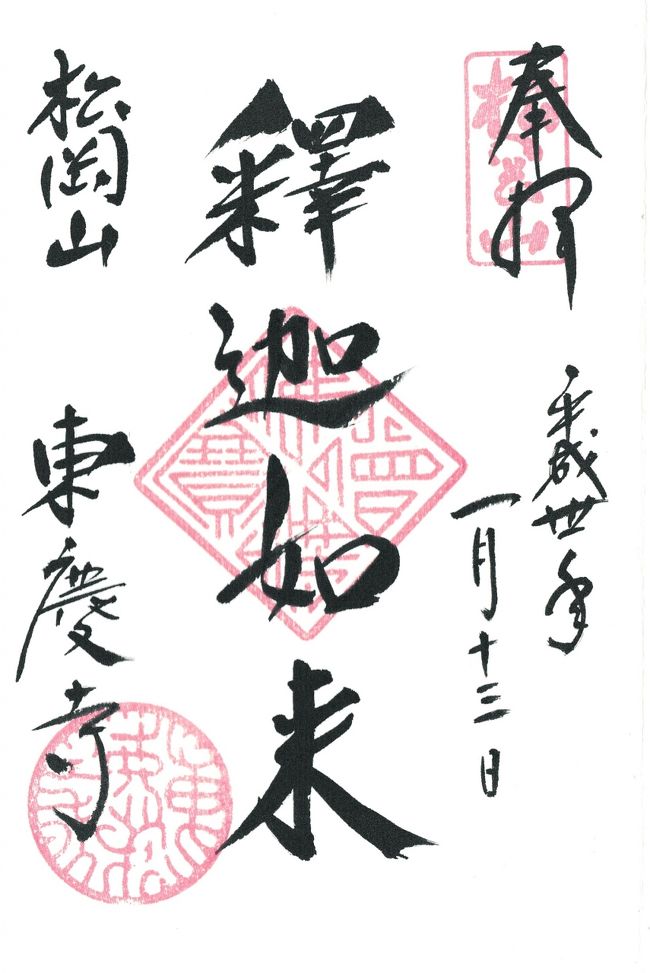 奉拝
平成丗年
一月十三日
釋迦如来
松岡山
東慶寺